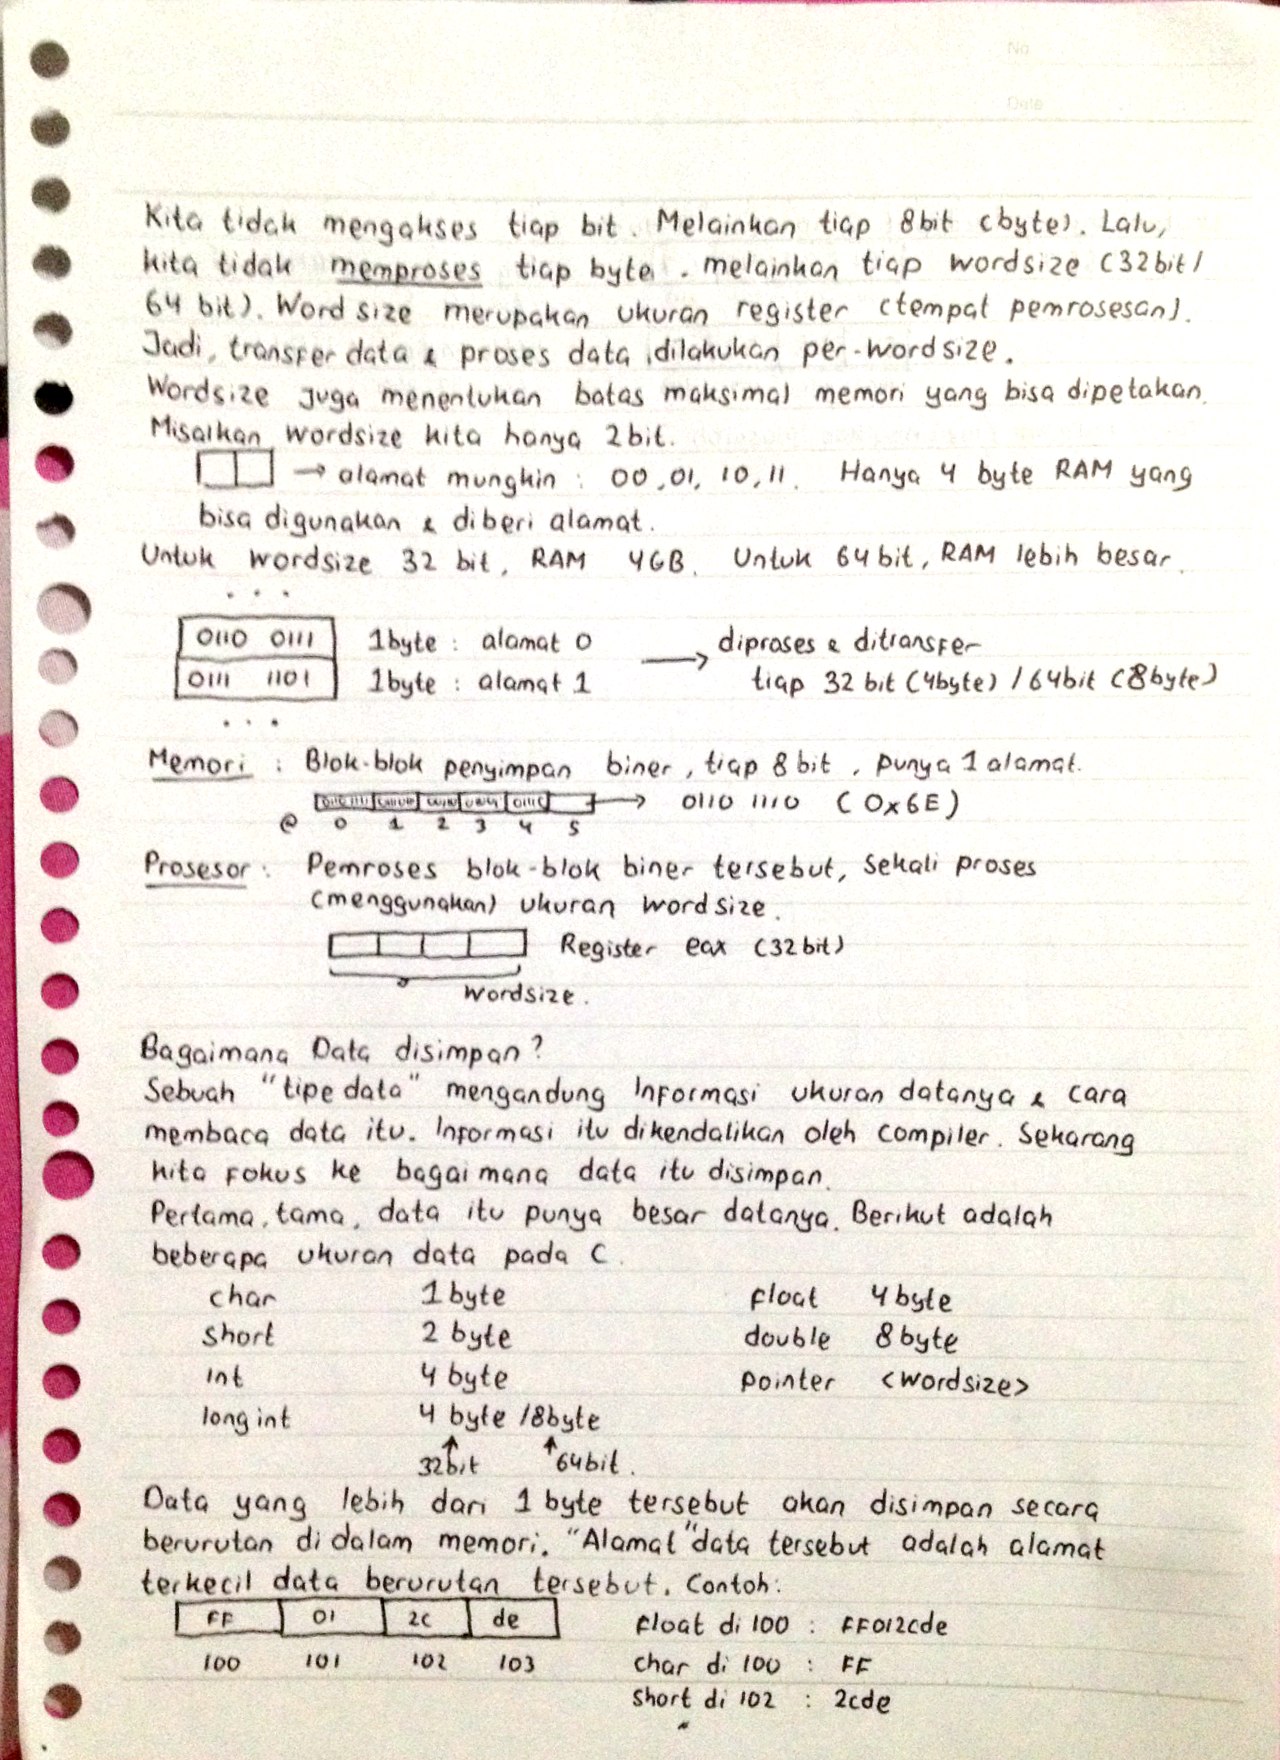 No
Date
Kita tidak mengakses tiap bit. Melainkan tiap 8bit (byte). Lalu,
kita tidak memproses tiap byte. melainkan tiap wordsize (32bit/
64 bit). Word size merupakan ukuran register (tempat pemrosesan).
Jadi, transfer data & proses data dilakukan per-wordsize.
Wordsize juga menentukan batas maksimal memori yang bisa dipetakan.
Misalkan wordsize kita hanya 2bit.
→ alamat mungkin : 00, 01, 10, 11. Hanya 4 byte RAM yang
bisa digunakan & diberi alamat.
Untuk wordsize 32 bit, RAM 4GB. Untuk 64 bit, RAM lebih besar.
...
0110 0111 1byte : alamat 0 → diproses & ditransfer
0111 1101 1byte : alamat 1 tiap 32 bit (4byte) / 64bit (8byte)
...
Memori : Blok-blok penyimpan biner, tiap 8 bit, punya 1 alamat.
→ 0110 1110 (0x6E)
@ 0 1 2 3 4 5
Prosesor : Pemroses blok-blok biner tersebut, Sekali proses
(menggunakan) ukuran wordsize.
Register eax (32bit)
Wordsize.
Bagaimana Data disimpan?
Sebuah "tipe data" mengandung Informasi ukuran datanya & cara
membaca data itu. Informasi itu dikendalikan oleh compiler. Sekarang
kita fokus ke bagaimana data itu disimpan.
Pertama, tama, data itu punya besar datanya. Berikut adalah
beberapa ukuran data pada C.
char 1 byte float 4 byte
short 2 byte double 8 byte
int 4 byte pointer <wordsize>
long int 4 byte /8byte
32bit 64bit.
Data yang lebih dari 1 byte tersebut akan disimpan secara
berurutan di dalam memori. "Alamat" data tersebut adalah alamat
terkecil data berurutan tersebut. Contoh:
FF 01 2c de float di 100 : FF012cde
100 101 102 103 char di 100 : FF
short di 102 : 2cde